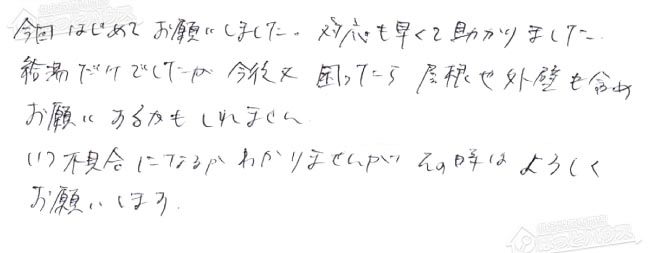 今回はじめてお願いしました。対応も早くて助かりました。
給湯だけでしたが今後又困ったら屋根や外壁も含め
お願いするかもしれません
いつ不具合になるかわかりませんがその時はよろしく
お願いします.